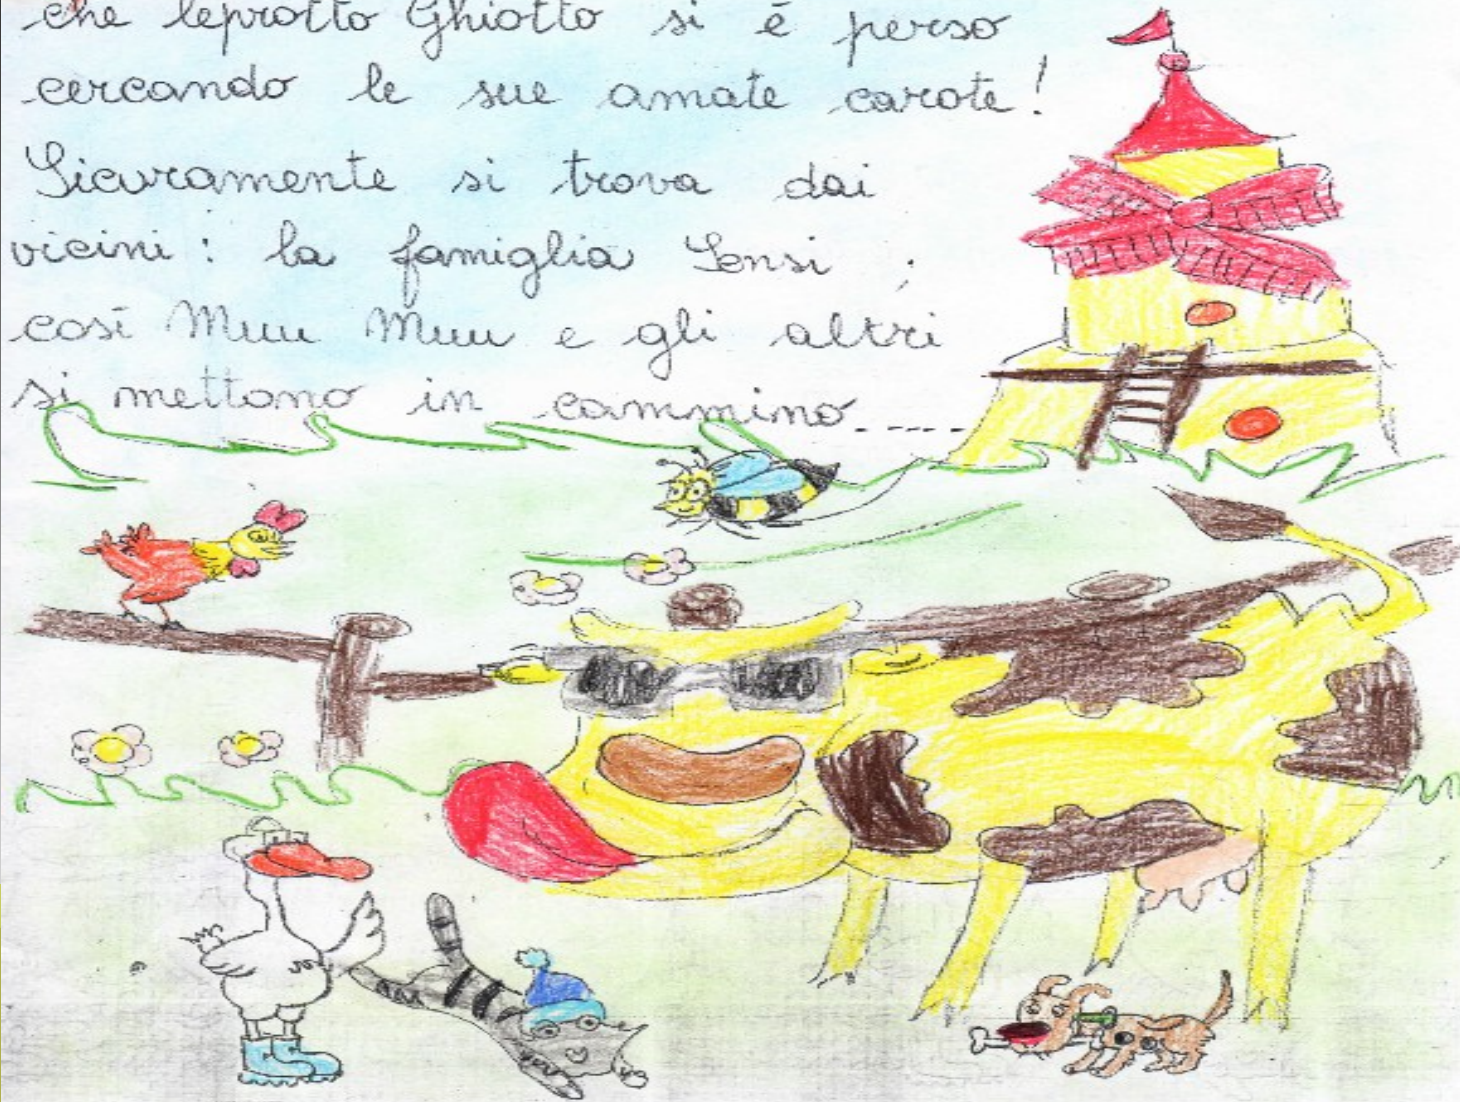 che leprotto Ghiotto si è perso
cercando le sue amate carote!
Sicuramente si trova dai
vicini: la famiglia Sensi ;
così Muu Muu e gli altri
si mettono in cammino.----